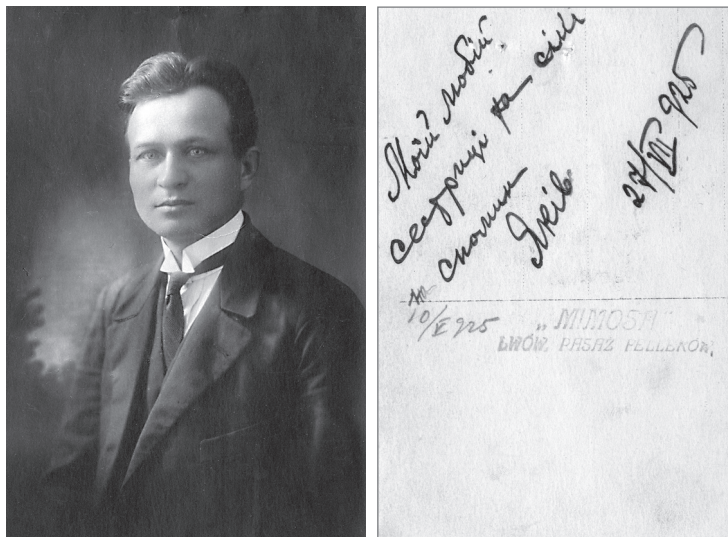 Моїй любій
сестриці на
спомин
Яків
27/VII 925
10/V 925
„MIMOSA”
LWÓW, PASAŻ FELLERÓW.